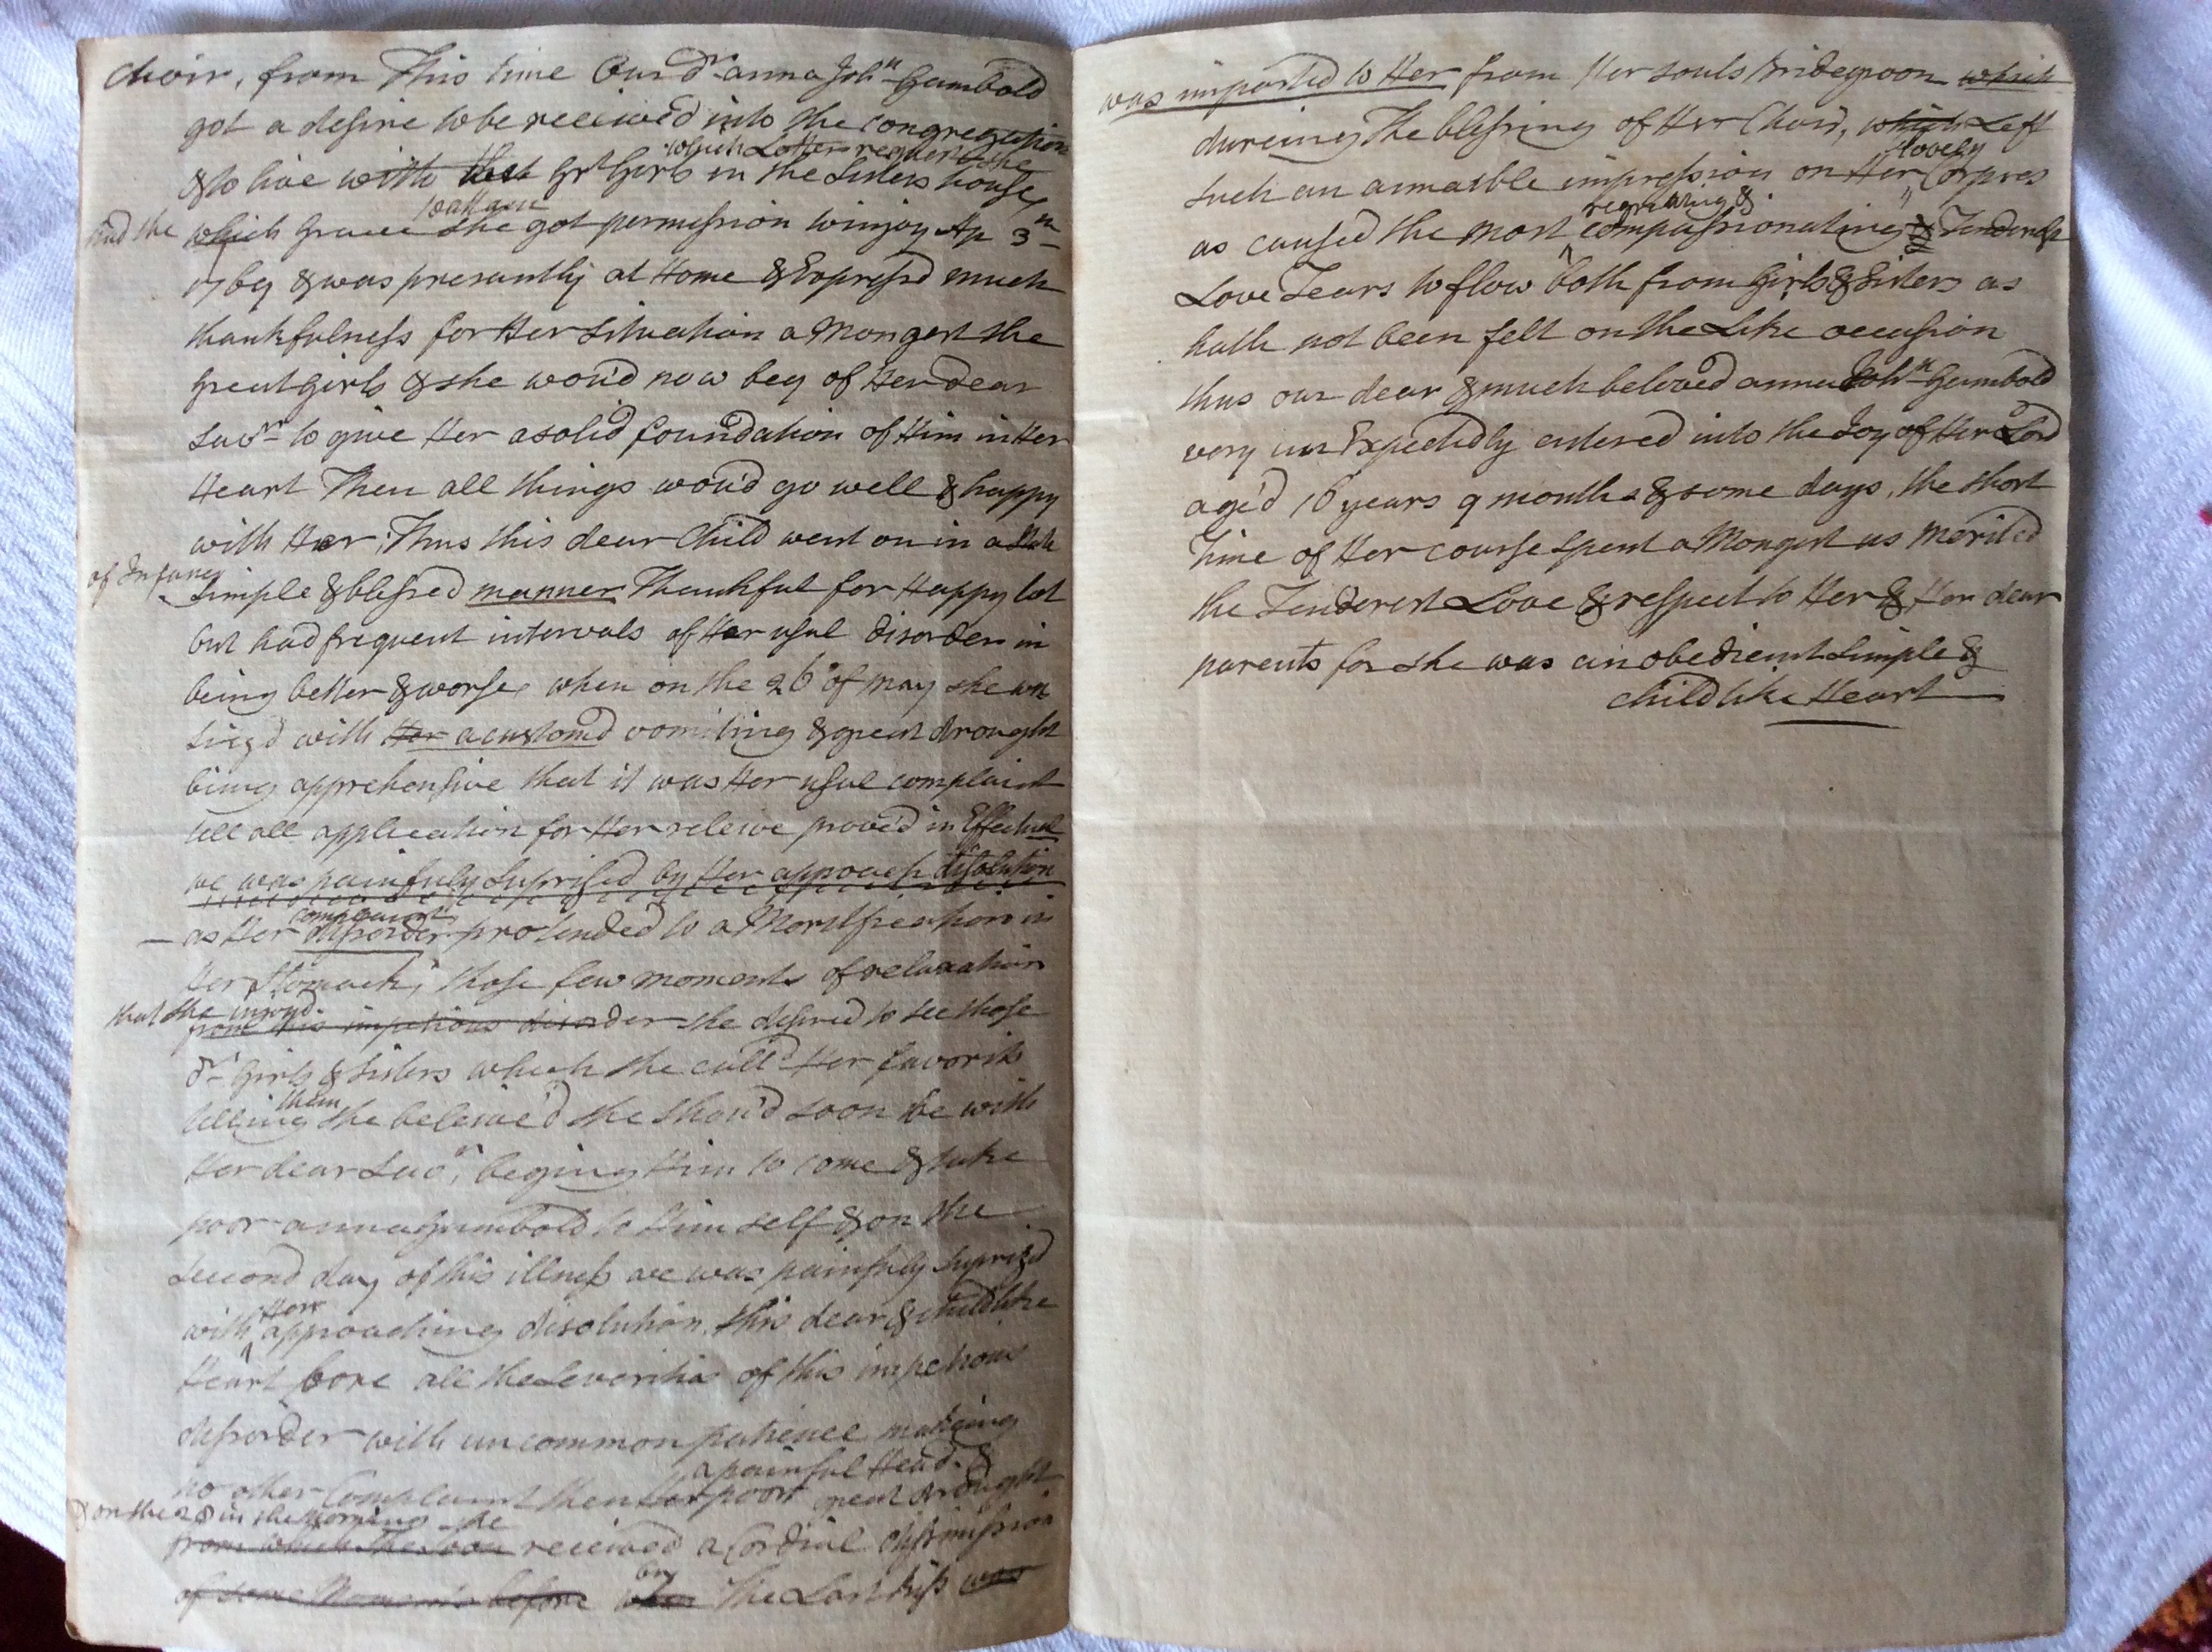 Choir, from This time Our Dr anna John Gambold
got a desire to be receiv'd into the congregation
which Latter request she
& to live with that Grt Girls in the Sisters house
and she which Grace she got permission to injoy Ap 3
1769 & was presantly at Home & Express'd much
thankfulness for Her Situation a Mongest the
Great Girls & she wou'd now beg of Her dear
Savr to give Her a solid foundation of Him in Her
Heart Then all things wou'd go well & happy
with Her, Thus this dear Child went on in a State
of Infancy
Simple & blessed manner Thankful for Happy lot
but had frequent intervals of Her usul disorder in
being better & worse, when on the 26 of may she wa
Siez'd with Her acustom'd vomiting & great drought
being apprehensive that it was Her usul complaint
till all application for Her releive prov'd in Effectual
we was painfuly Suprised by Her approach disolution
complaint
— as Her disorder protended to a Mortification in
Her Stomach, those few moments of relaxation
that she injoyd
from this impetious disorder she desired to see those
Dr Girls & Sisters which she calld Her favorits
them
telling she beleive'd she shou'd soon be with
Her dear Savr, beging Him to come & take
poor anna Gambold to Him self & on the
second day of this illness we was painfuly Suprized
Her
with approaching disolution, this dear & childlike
Heart bore all the Severitis of this impetious
disorder with uncommon patience makeing
a painful Head &
no other Complaint then Her poor great drought
& on the 28 in the Morning she
from which she soon received a Cordial dissmission
by
of some Moments before when The Last kiss was
was imparted to Her from Her Souls Bridegroom which
dureing The blessing of Her Choir, which Left
lovely
such an aimaible impression on Her Corpes
regreting &
as caused the most compassionating & Tenderest
Love Tears to flow both from Girls & Sisters as
hath not been felt on the Like occasion
thus our dear & much beloved anna Johna Gambold
very un Expectedly entered into the Joy of Her Lord
age'd 16 years 9 months & some days, the short
Time of Her course spent a Mongest us merited
the Tenderest Love & respect to Her & Her dear
parents for she was an obedient Simple &
childlike Heart